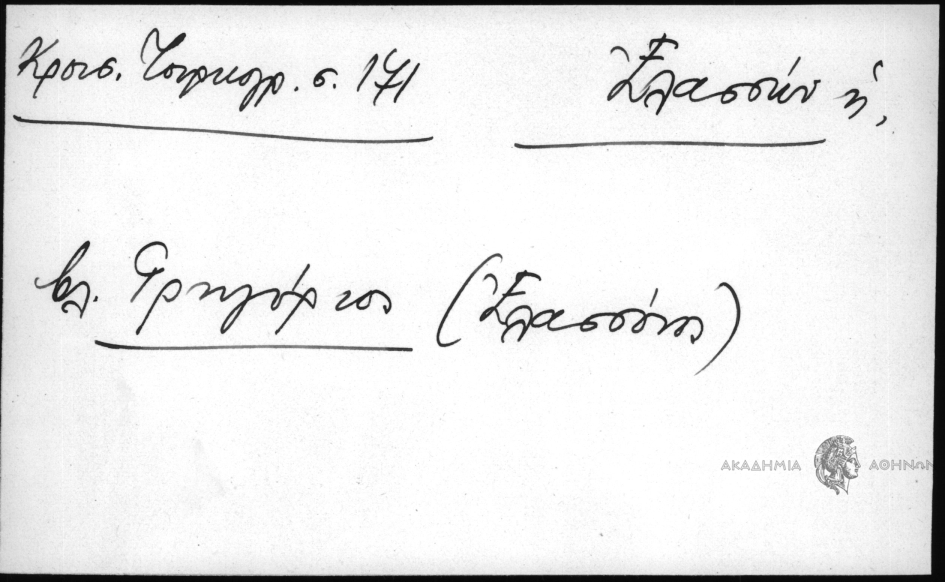 Κρουσ. Τουρκογρ. σ. 171
Ἐλασσών ἡ,
βλ. Γρηγόριος (Ἐλασσόνος)
ΑΚΑΔΗΜΙΑ ΑΘΗΝΩΝ